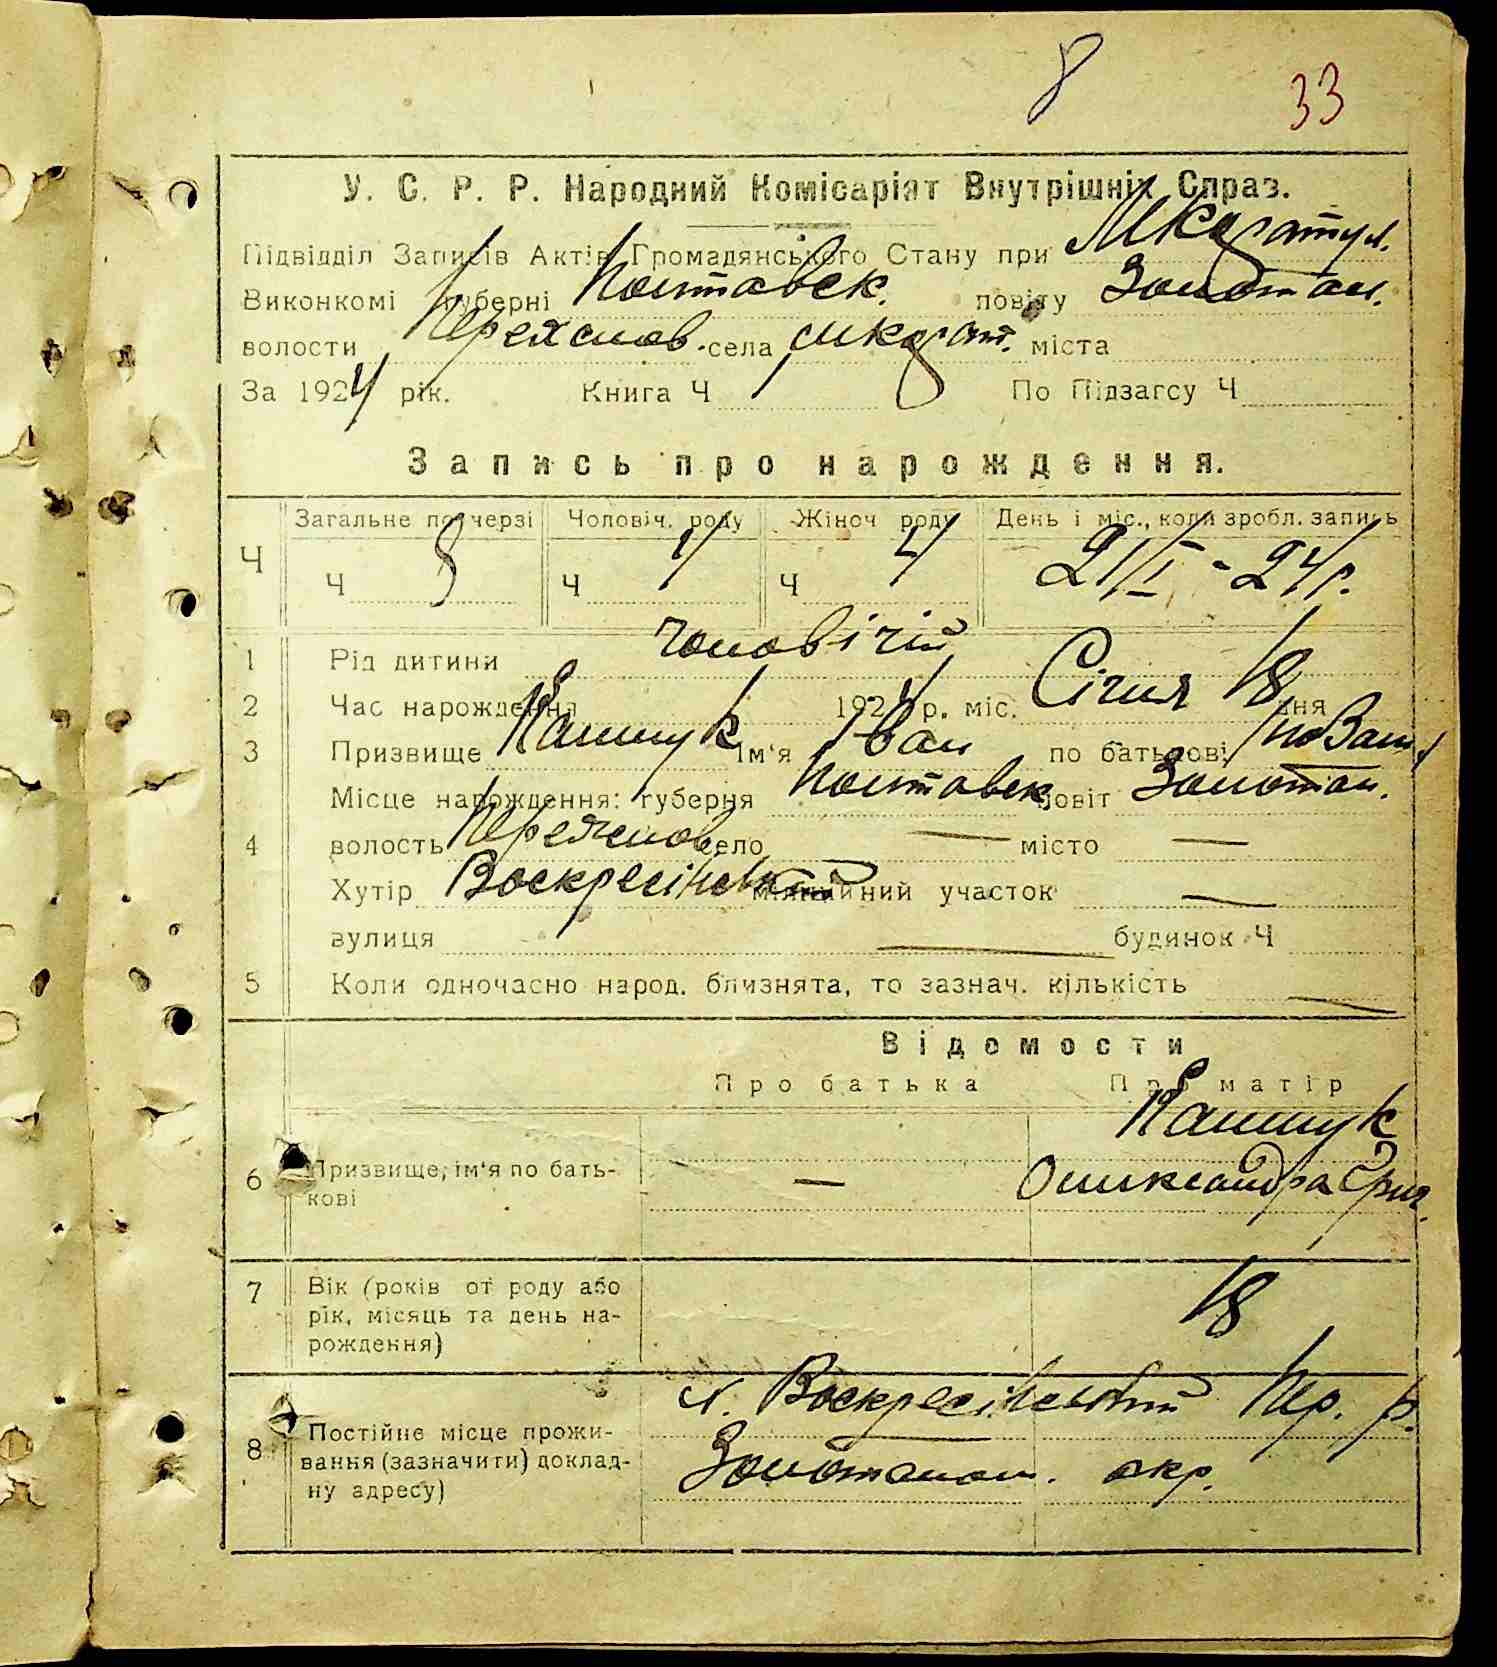 8
33
У. С. Р. Р. Народний Комісаріят Внутрішніх Справ.
Підвідділ Записів Актів Громадянського Стану при
Виконкомі губерні Полтавск. повіту Золотон.
волости Переяслов. села місто
За 1924 рік. Книга Ч По Підзагсу Ч
Запись про нарождення.
Загальне по черзі Чоловіч. роду Жіноч роду День і міс., коли зробл. запись
Ч Ч 8 Ч 4 Ч 4 21/I - 24 р.
1 Рід дитини чоловічій
2 Час нарождення 1924 р. міс. Січня 18 дня
3 Призвище Ім'я Іван по батькові
Місце нарождення: губерня Полтавск повіт Золотон.
4 волость Переяслов село — місто —
Хутір Воскресінський участок —
вулиця — будинок Ч
5 Коли одночасно народ. близнята, то зазнач. кількість —
Відомости
Про батька Про матір
6 Призвище, ім'я по бать-
кові — Олександра Григ.
7 Вік (років от роду або
рік, місяць та день на-
рождення) 18
х. Воскресінський Пер. р.
8 Постійне місце прожи-
вання (зазначити) доклад-
ну адресу) Золотонош. окр.